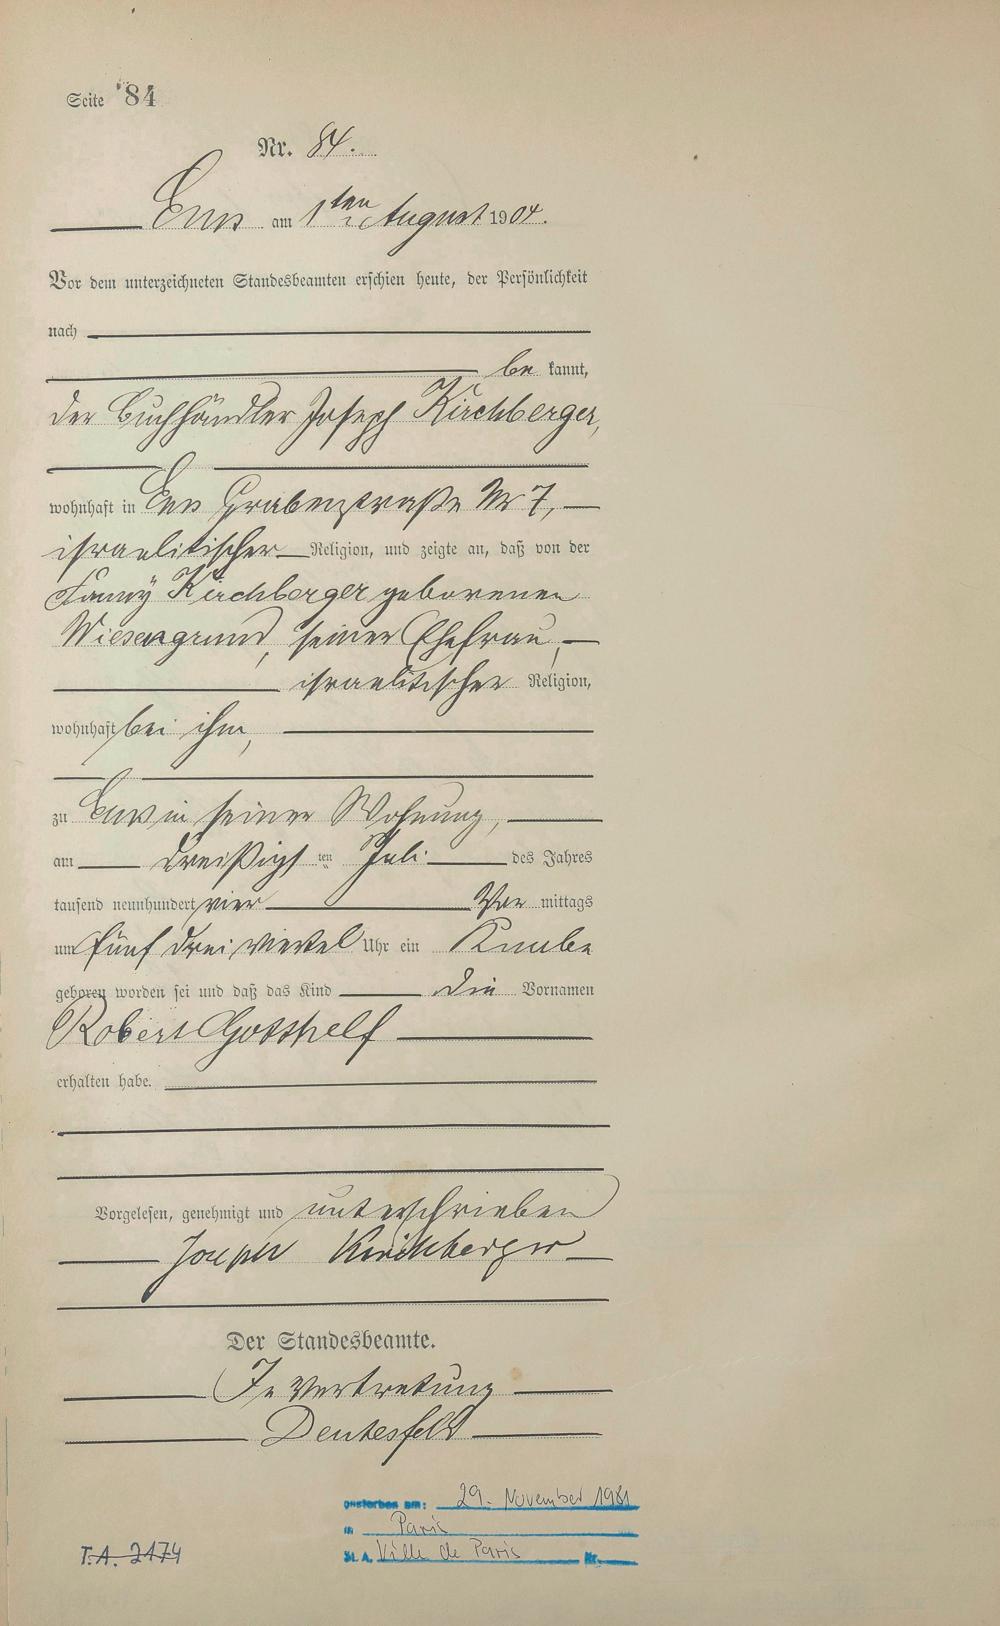 Seite 84
Nr. 84.
Ems am 1ten August 1904.
Vor dem unterzeichneten Standesbeamten erschien heute, der Persönlichkeit
nach
be kannt,
der Buchhändler Joseph Kirchberger,
wohnhaft in Ems Grabenstraße Nr 7,
israelitischer Religion, und zeigte an, daß von der
Fanny Kirchberger geborenen
Wiesengrund, seiner Ehefrau,
israelitischer Religion,
wohnhaft bei ihm,
zu Ems in seiner Wohnung,
am dreißigsten Juli des Jahres
tausend neunhundert vier Vor mittags
um fünf drei viertel Uhr ein Knabe
geboren worden sei und daß das Kind die Vornamen
Robert Gotthelf
erhalten habe.
Vorgelesen, genehmigt und unterschrieben
Joseph Kirchberger
Der Standesbeamte.
In Vertretung
gestorben am: 29. November 1981
in Paris
St. A. Ville de Paris Nr.
T.A. 2174